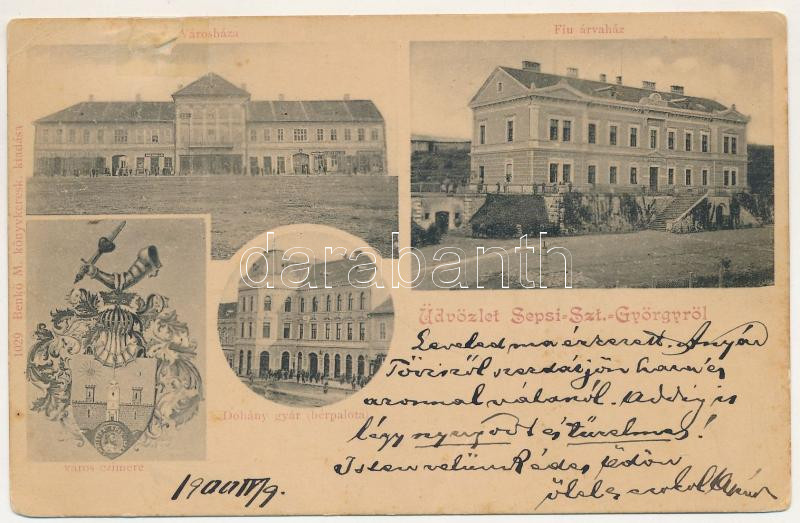 Városháza
Fiu árvaház
1029 Benkő M. könyvkeresk. kiadása
darabanth
Üdvözlet Sepsi-Szt.-Györgyről
Dohány gyár (bérpalota)
város czimere
Leveled ma érkezett. Anyád
azonnal válaszol. Addig is
légy nyugodt és türelmes!
Isten velünk Édes
ölel s csókol
1900 IV/9.